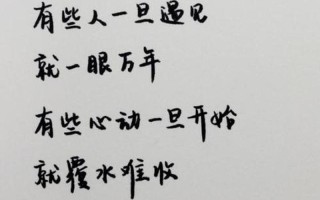 有些人一旦遇见
就一眼万年
有些心动一旦开始
就覆水难收